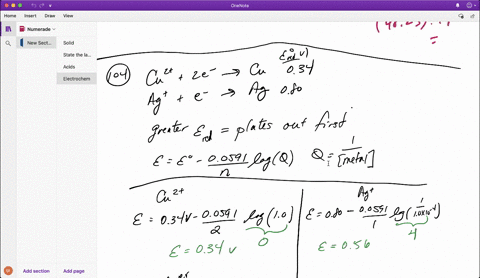 OneNote
Home Insert Draw View
Numerade
New Sect...
Solid
State the la...
Acids
Electrochem
Add section
Add page
=
104
ε°red (V)
Cu²⁺ + 2e⁻ → Cu 0.34
Ag⁺ + e⁻ → Ag 0.80
greater εred = plates out first
ε = ε° - 0.0591/n log(Q) Q = 1/[metal]
Cu²⁺
ε = 0.34v - 0.0591/2 log(1.0)
0
ε = 0.34 v
Ag⁺
ε = 0.80 - 0.0591/1 log(1/1.0×10⁻⁴)
4
ε = 0.56